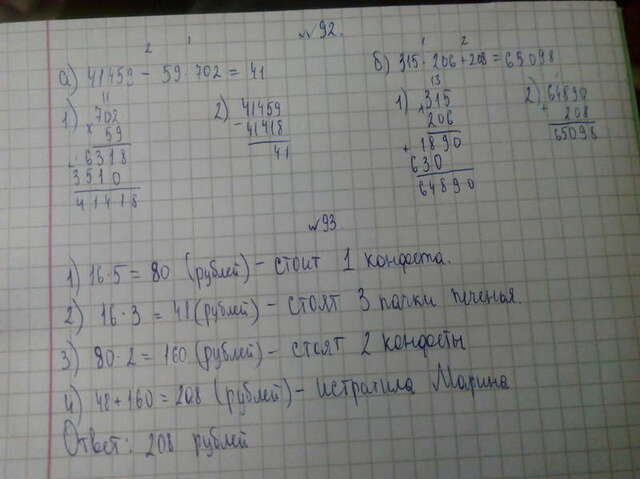 №92.
2 1
а) 41459 - 59·702 = 41
1) 11
702
× 59
+ 6318
3510
41418
2) 41459
- 41418
41
1 2
б) 315·206+208=65098
1) 13
×315
206
+ 1890
630
64890
2) 64890
+ 208
65098
№93
1) 16·5 = 80 (рублей) - стоит 1 конфета.
2) 16·3 = 48 (рублей) - стоят 3 пачки печенья.
3) 80·2 = 160 (рублей) - стоят 2 конфеты
4) 48+160=208 (рублей) - истратила Марина
Ответ: 208 рублей